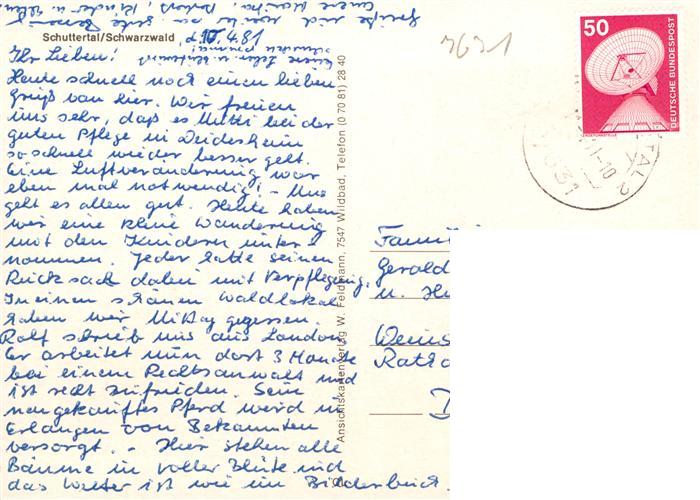 Schuttertal/Schwarzwald
, d. 10.4.81
Ihr Lieben!
Heute schnell noch einen lieben
Gruß von hier. Wir freuen
uns sehr, daß es Mutti bei der
guten Pflege in Weidesheim
so schnell wieder besser geht.
Eine Luftveränderung war
eben mal notwendig! - Uns
geht es allen gut. Heute haben
wir eine kleine Wanderung
mit den Kindern unter-
nommen. Jeder hatte seinen
Rucksack dabei mit Verpflegung.
In einem schönen Waldlokal
haben wir Mittag gegessen.
Ralf schrieb uns aus London
Er arbeitet nun dort 3 Monate
bei einem Rechtsanwalt und
ist recht zufrieden. Sein
neugekauftes Pferd wird in
Erlangen von Bekannten
versorgt. - Hier stehen alle
Bäume in voller Blüte und
das Wetter ist wie im Bilderbuch.
Ansichtskartenverlag W. Feldmann, 7547 Wildbad, Telefon (0 70 81) 28 40
3631
50
DEUTSCHE BUNDESPOST
ERDEFUNKSTELLE
TAL 2
-10
7631
Famil
Gerald
u. He
Weins
Ratha
D